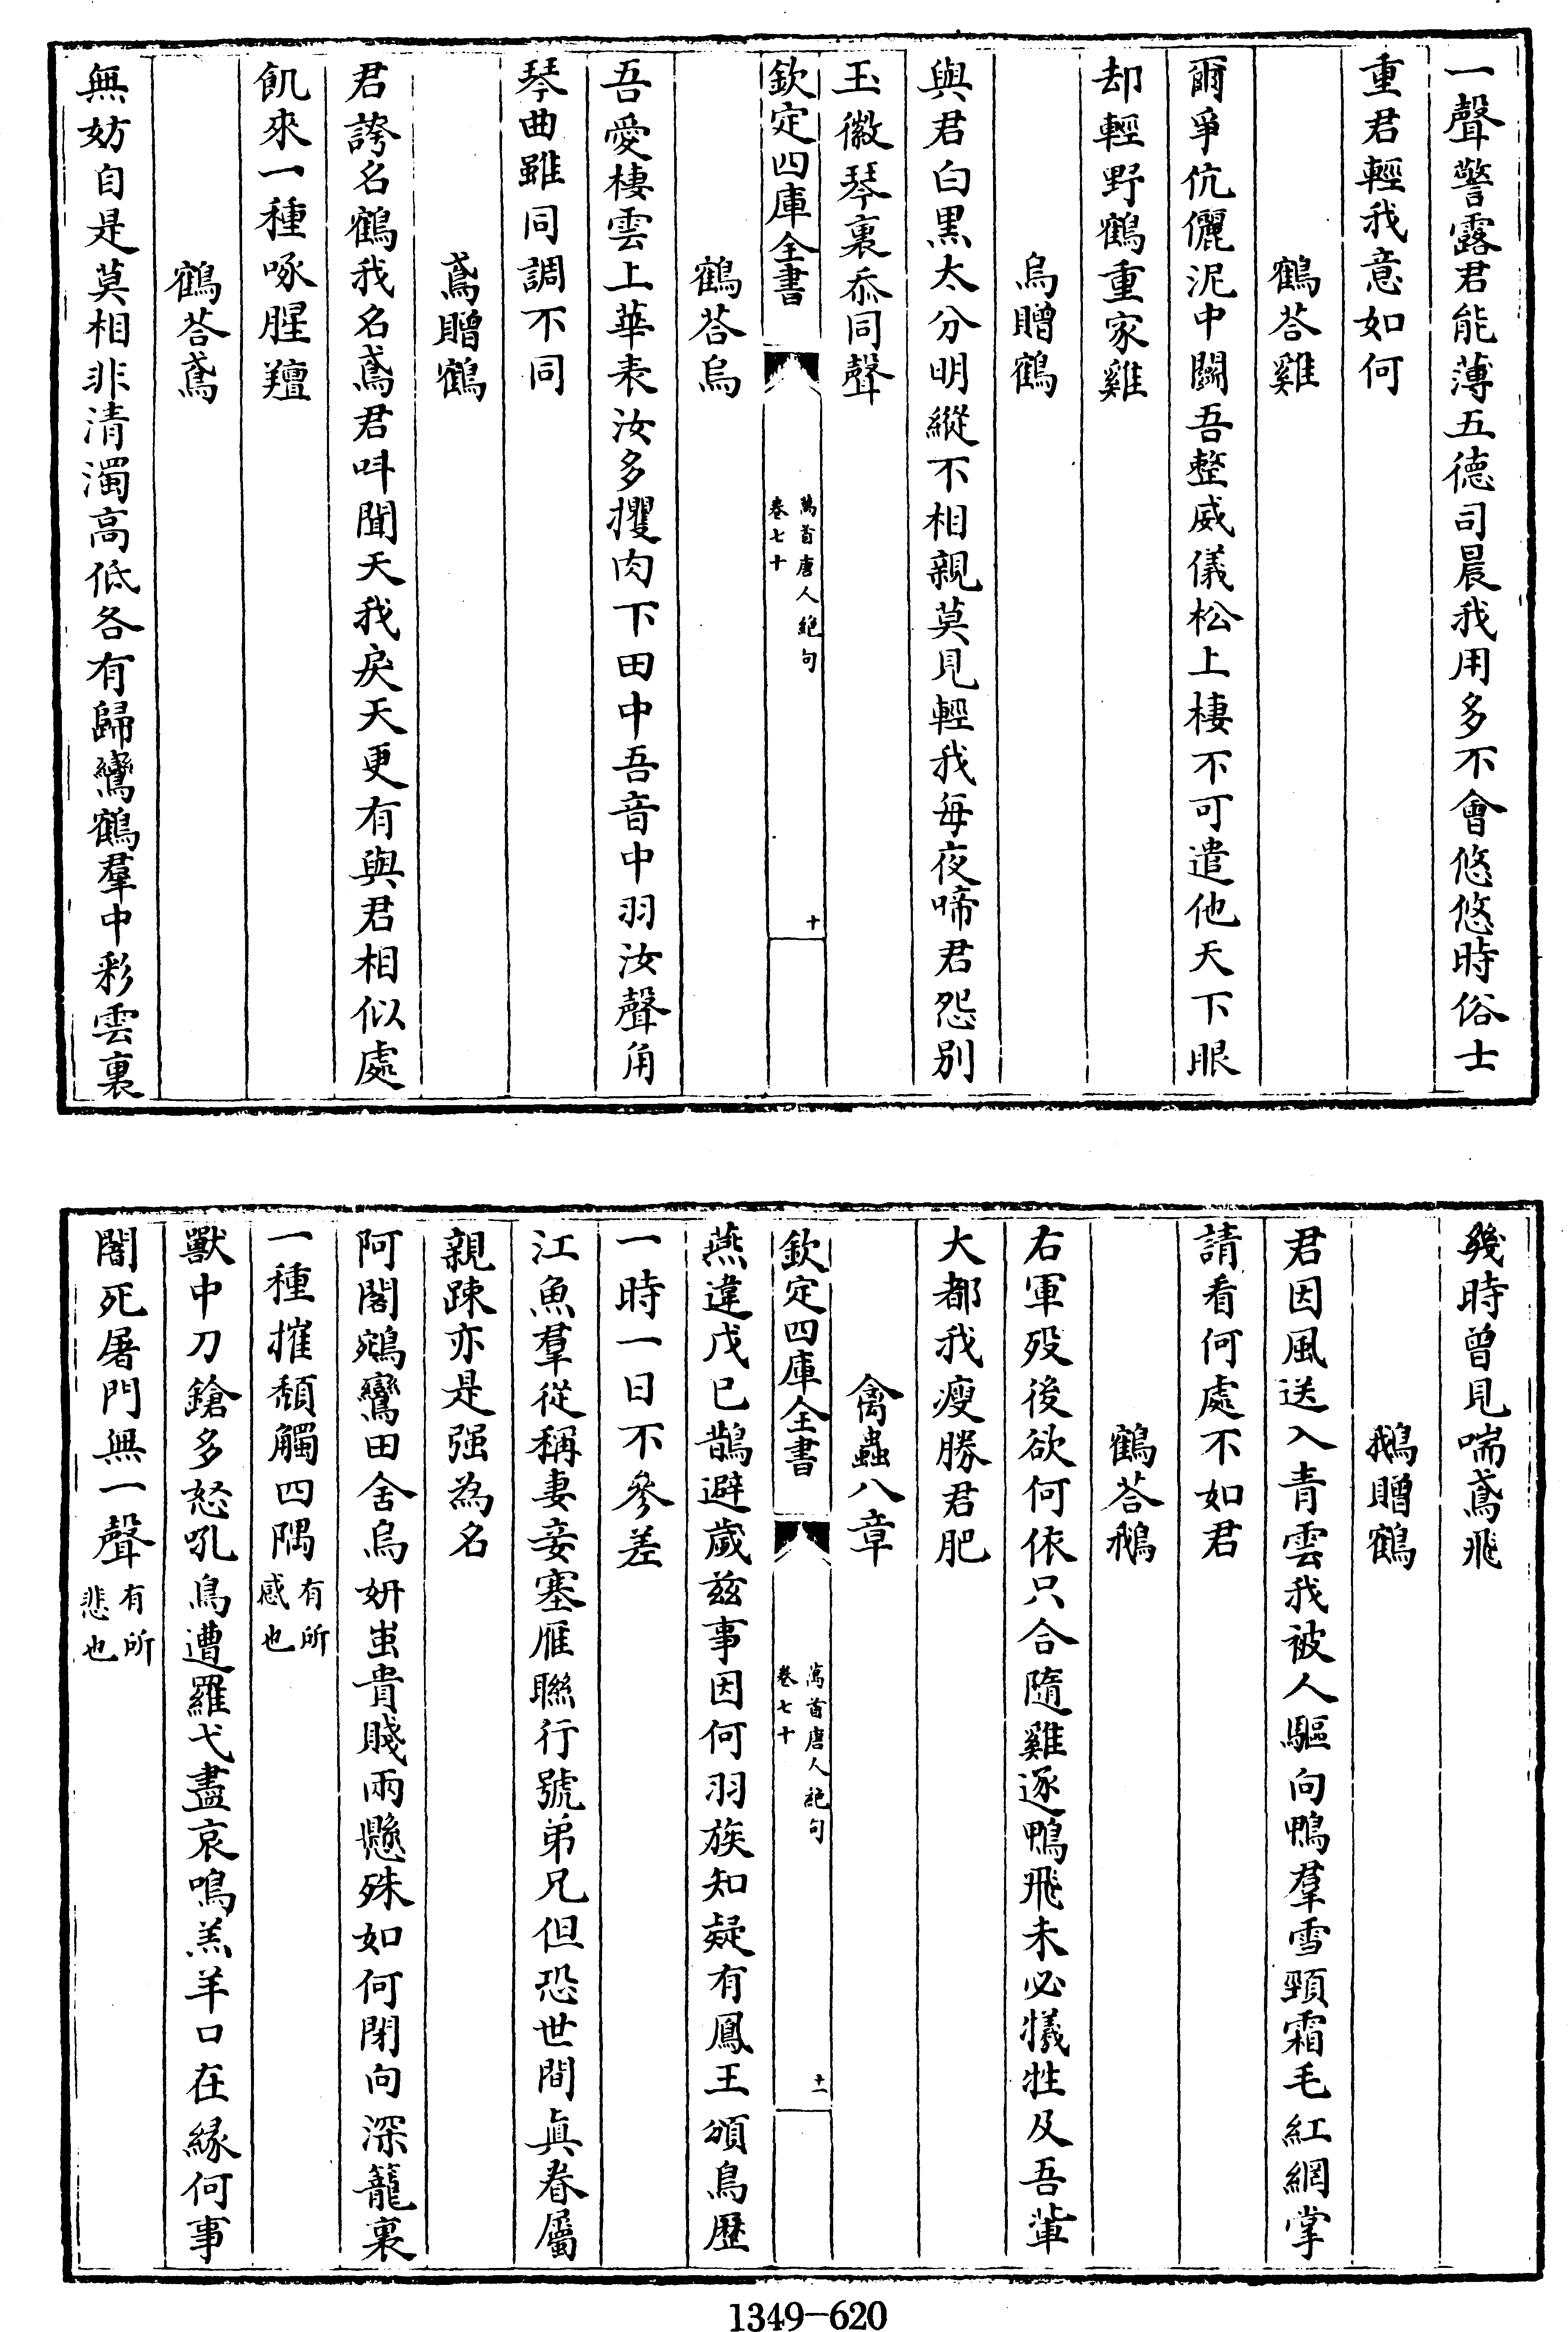 一聲警露君能薄五德司晨我用多不會悠悠時俗士
重君輕我意如何
鶴荅雞
爾爭伉儷泥中鬭吾整威儀松上棲不可遣他天下眼
却輕野鶴重家雞
烏贈鶴
與君白黒太分明縱不相親莫見輕我每夜啼君怨别
玉徽琴裏忝同聲
欽定四庫全書
萬首唐人絶句
卷七十
十
鶴荅烏
吾愛棲雲上華表汝多攫肉下田中吾音中羽汝聲角
琴曲雖同調不同
鳶贈鶴
君誇名鶴我名鳶君呌聞天我戾天更有與君相似處
飢來一種啄腥羶
鶴荅鳶
無妨自是莫相非清濁高低各有歸鸞鶴羣中彩雲裏
幾時曾見喘鳶飛
鵝贈鶴
君因風送入青雲我被人驅向鴨羣雪頸霜毛紅網掌
請看何處不如君
鶴荅鵝
右軍殁後欲何依只合隨雞逐鴨飛未必犧牲及吾輩
大都我瘦勝君肥
禽蟲八章
欽定四庫全書
萬首唐人絶句
卷七十
十一
燕違戊巳鵲避歲兹事因何羽族知疑有鳳王頒鳥歴
一時一日不參差
江魚羣從稱妻妾塞雁聯行號弟兄但恐世間眞眷屬
親踈亦是强為名
阿閣鵷鸞田舍烏妍蚩貴賤兩懸殊如何閉向深籠裏
一種摧頽觸四隅有所感也
獸中刀鎗多怒吼鳥遭羅弋盡哀鳴羔羊口在緣何事
闇死屠門無一聲有所悲也
1349-620